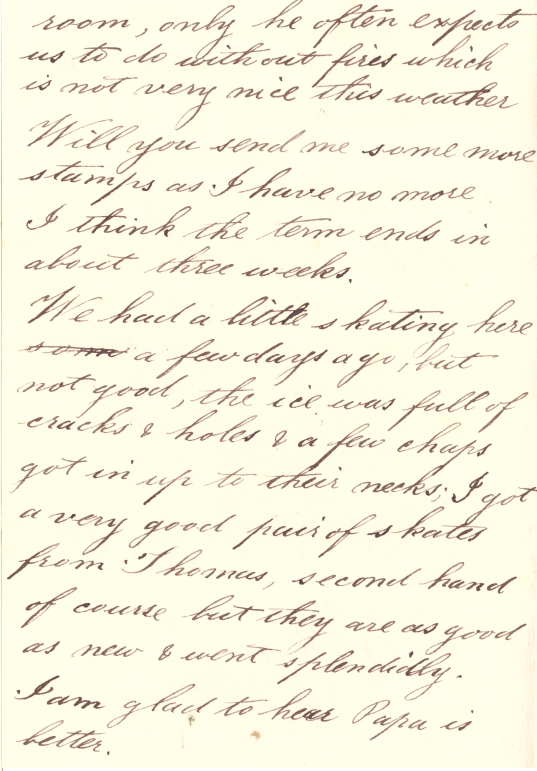 room, only he often expects
us to do without fires which
is not very nice this weather
Will you send me some more
stamps as I have no more
I think the term ends in
about three weeks.
We had a little skating here
som a few days ago, but
not good, the ice was full of
cracks & holes & a few chaps
got in up to their necks; I got
a very good pair of skates
from Thomas, second hand
of course but they are as good
as new & went splendidly.
I am glad to hear Papa is
better.